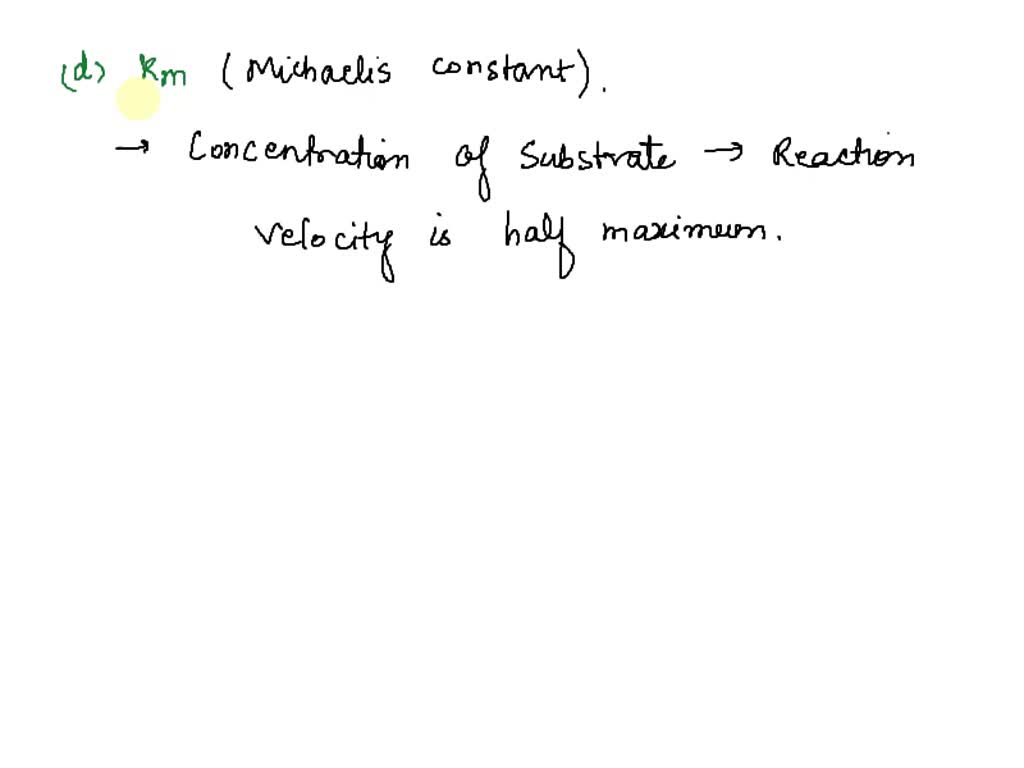 (d) Km (Michaelis constant).
→ Concentration of Substrate → Reaction
velocity is half maximum.